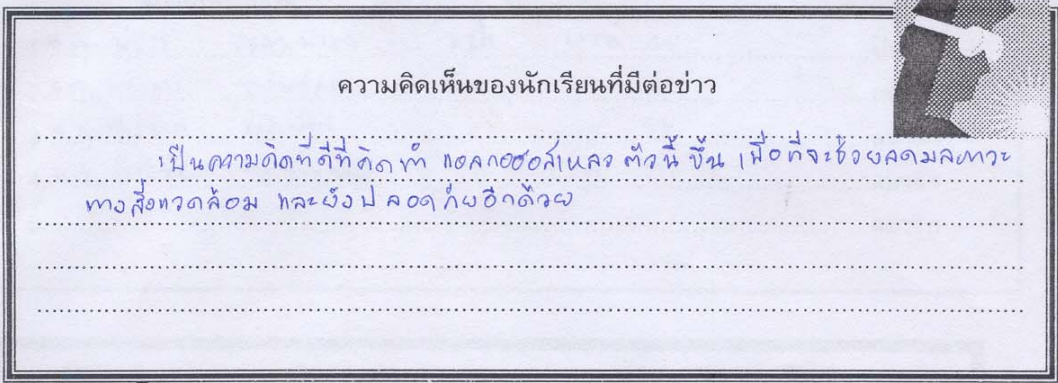 ความคิดเห็นของนักเรียนที่มีต่อข่าว
เป็นความคิดที่ดีที่คิดทำ แอลกอฮอล์เหลว ตัวนี้ ขึ้น เพื่อที่จะช่วยลดมลภาวะ
ทางสิ่งแวดล้อม และยังปลอดภัยอีกด้วย